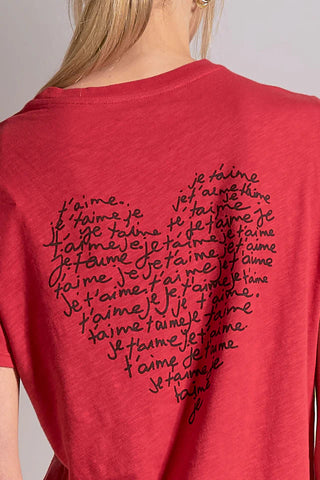 je t'aime
t'aime. je t'aime t'aime
je t'aime je te t'aime
t'aime je t'aime je t'aime je
t'aime je je t'aime t'aime
je t'aime je t'aime je t'aime
t'aime je t'aime je t'aime
je t'aime je t'aime je t'aime
je t'aime je t'aime
t'aime je t'aime.
t'aime t'aime je t'aime
je t'aime je t'aime
t'aime je t'aime
je t'aime je
t'aime je
je